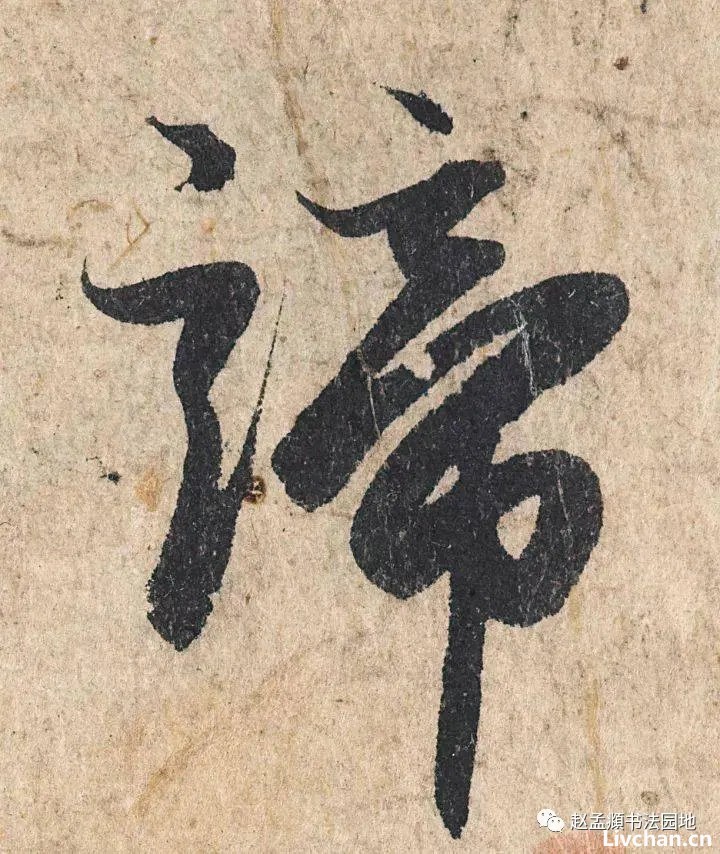 諦
赵孟頫书法园地
Livchan.cn